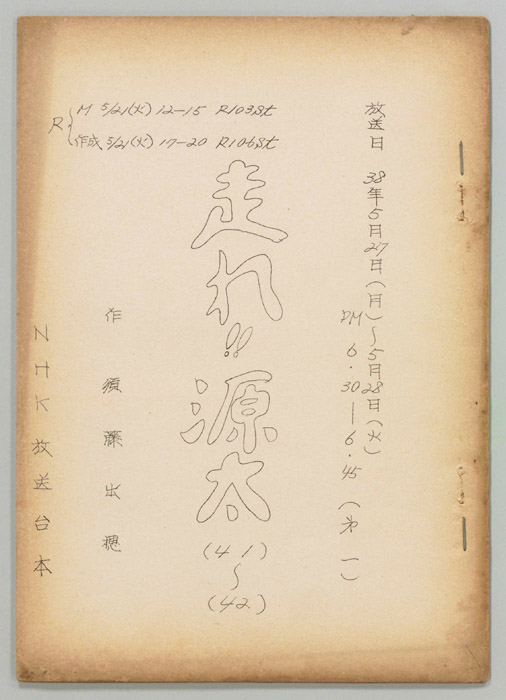 放送日 38年5月27日(月)~5月28日(火)
PM 6・30—6・45 (第一)
R { M 5/21(火) 12-15 R103St
作成 5/21(火) 17-20 R106St
走れ!!源太
(41)
~
(42)
作 須藤出穂
NHK放送台本